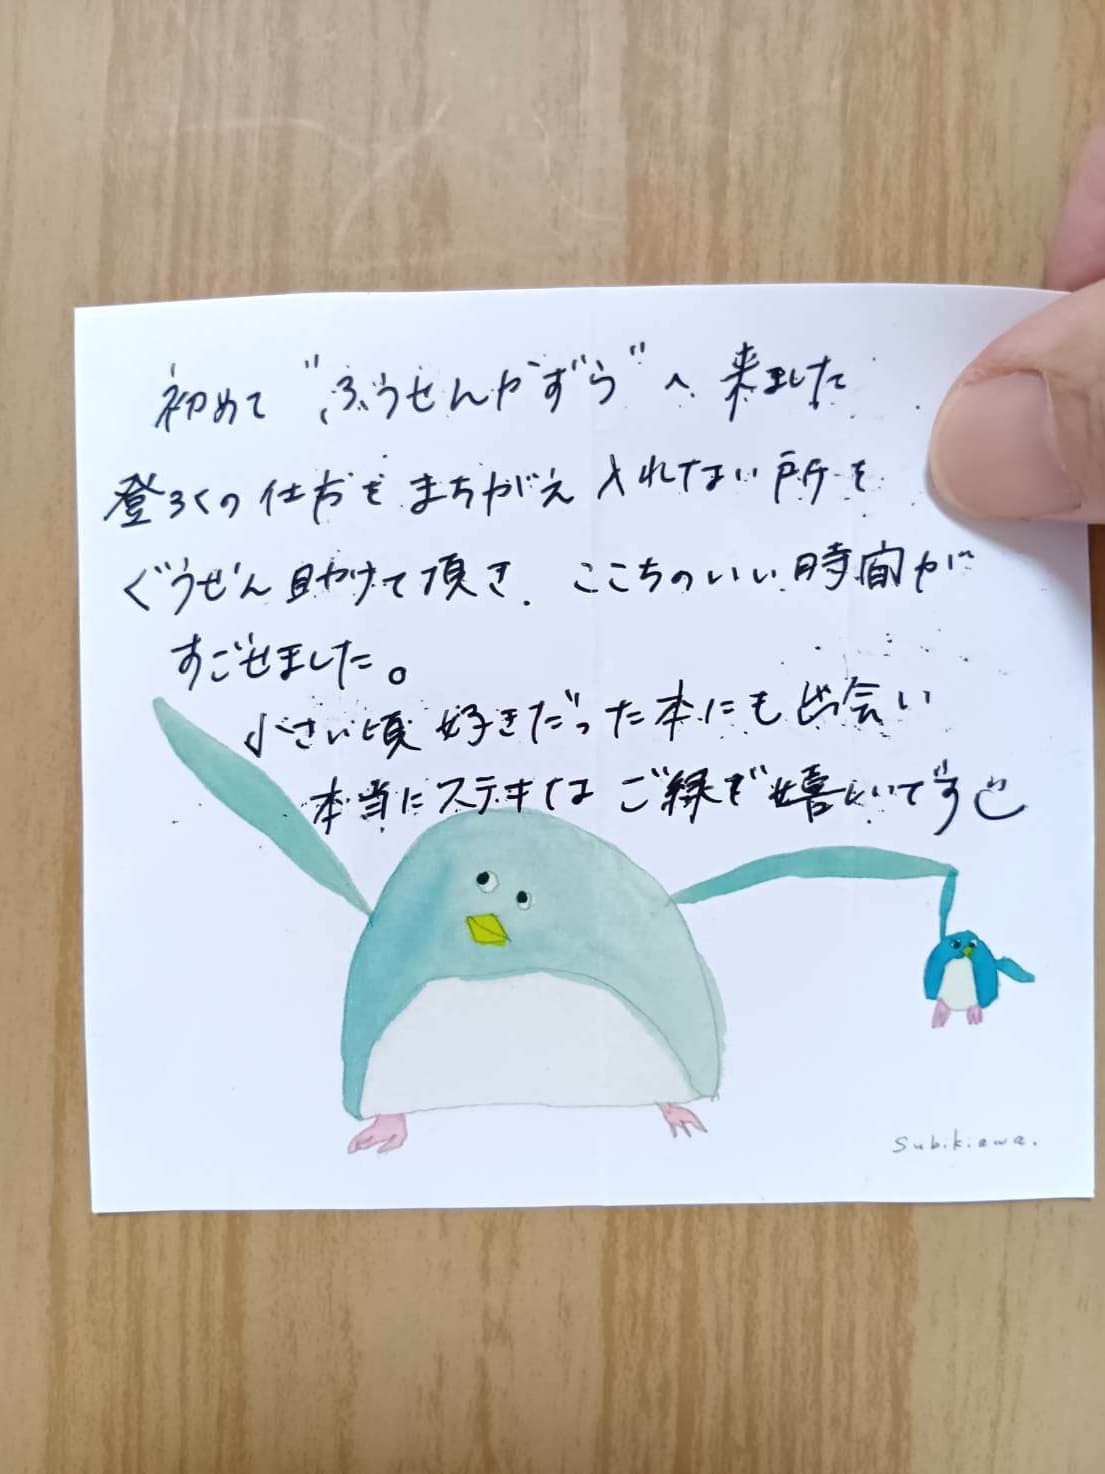 初めて"ふうせんかずら"へ来ました
登ろくの仕方をまちがえ入れない所を
ぐうぜん助けて頂き、ここちのいい時間が
すごせました。
小さい頃好きだった本にも出会い
本当にステキなご縁で嬉しいです
subikiawa.